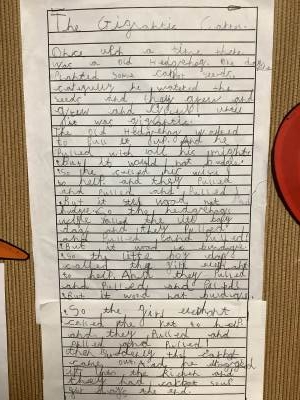 The Gigrantic Carrot.
Once upon a time there
was a old Hedgehog one day
Planted some carrot seeds.
he watered the
seeds and they grew and
grew and until
it was gigrantic
The old Hedgehog wanted
to pull it out. And he
Pulled with all his might
But it would not budge.
So he called his wife
to help and they Pulled
and Pulled and Pulled!
But it still would not
budge So the hedgehog
wife called the little boy
dog and they Pulled
and Pulled and Pulled!
But it would not budge
So the little boy dog
called the girl elephant
to help And they Pulled
and Pulled and Pulled
But it would not budge
So the girl elephant
called the cat to help
and they Pulled and
Pulled and Pulled!
then suddenly the carrot
came out
into the kitchen and
they had carrot soup
the end.